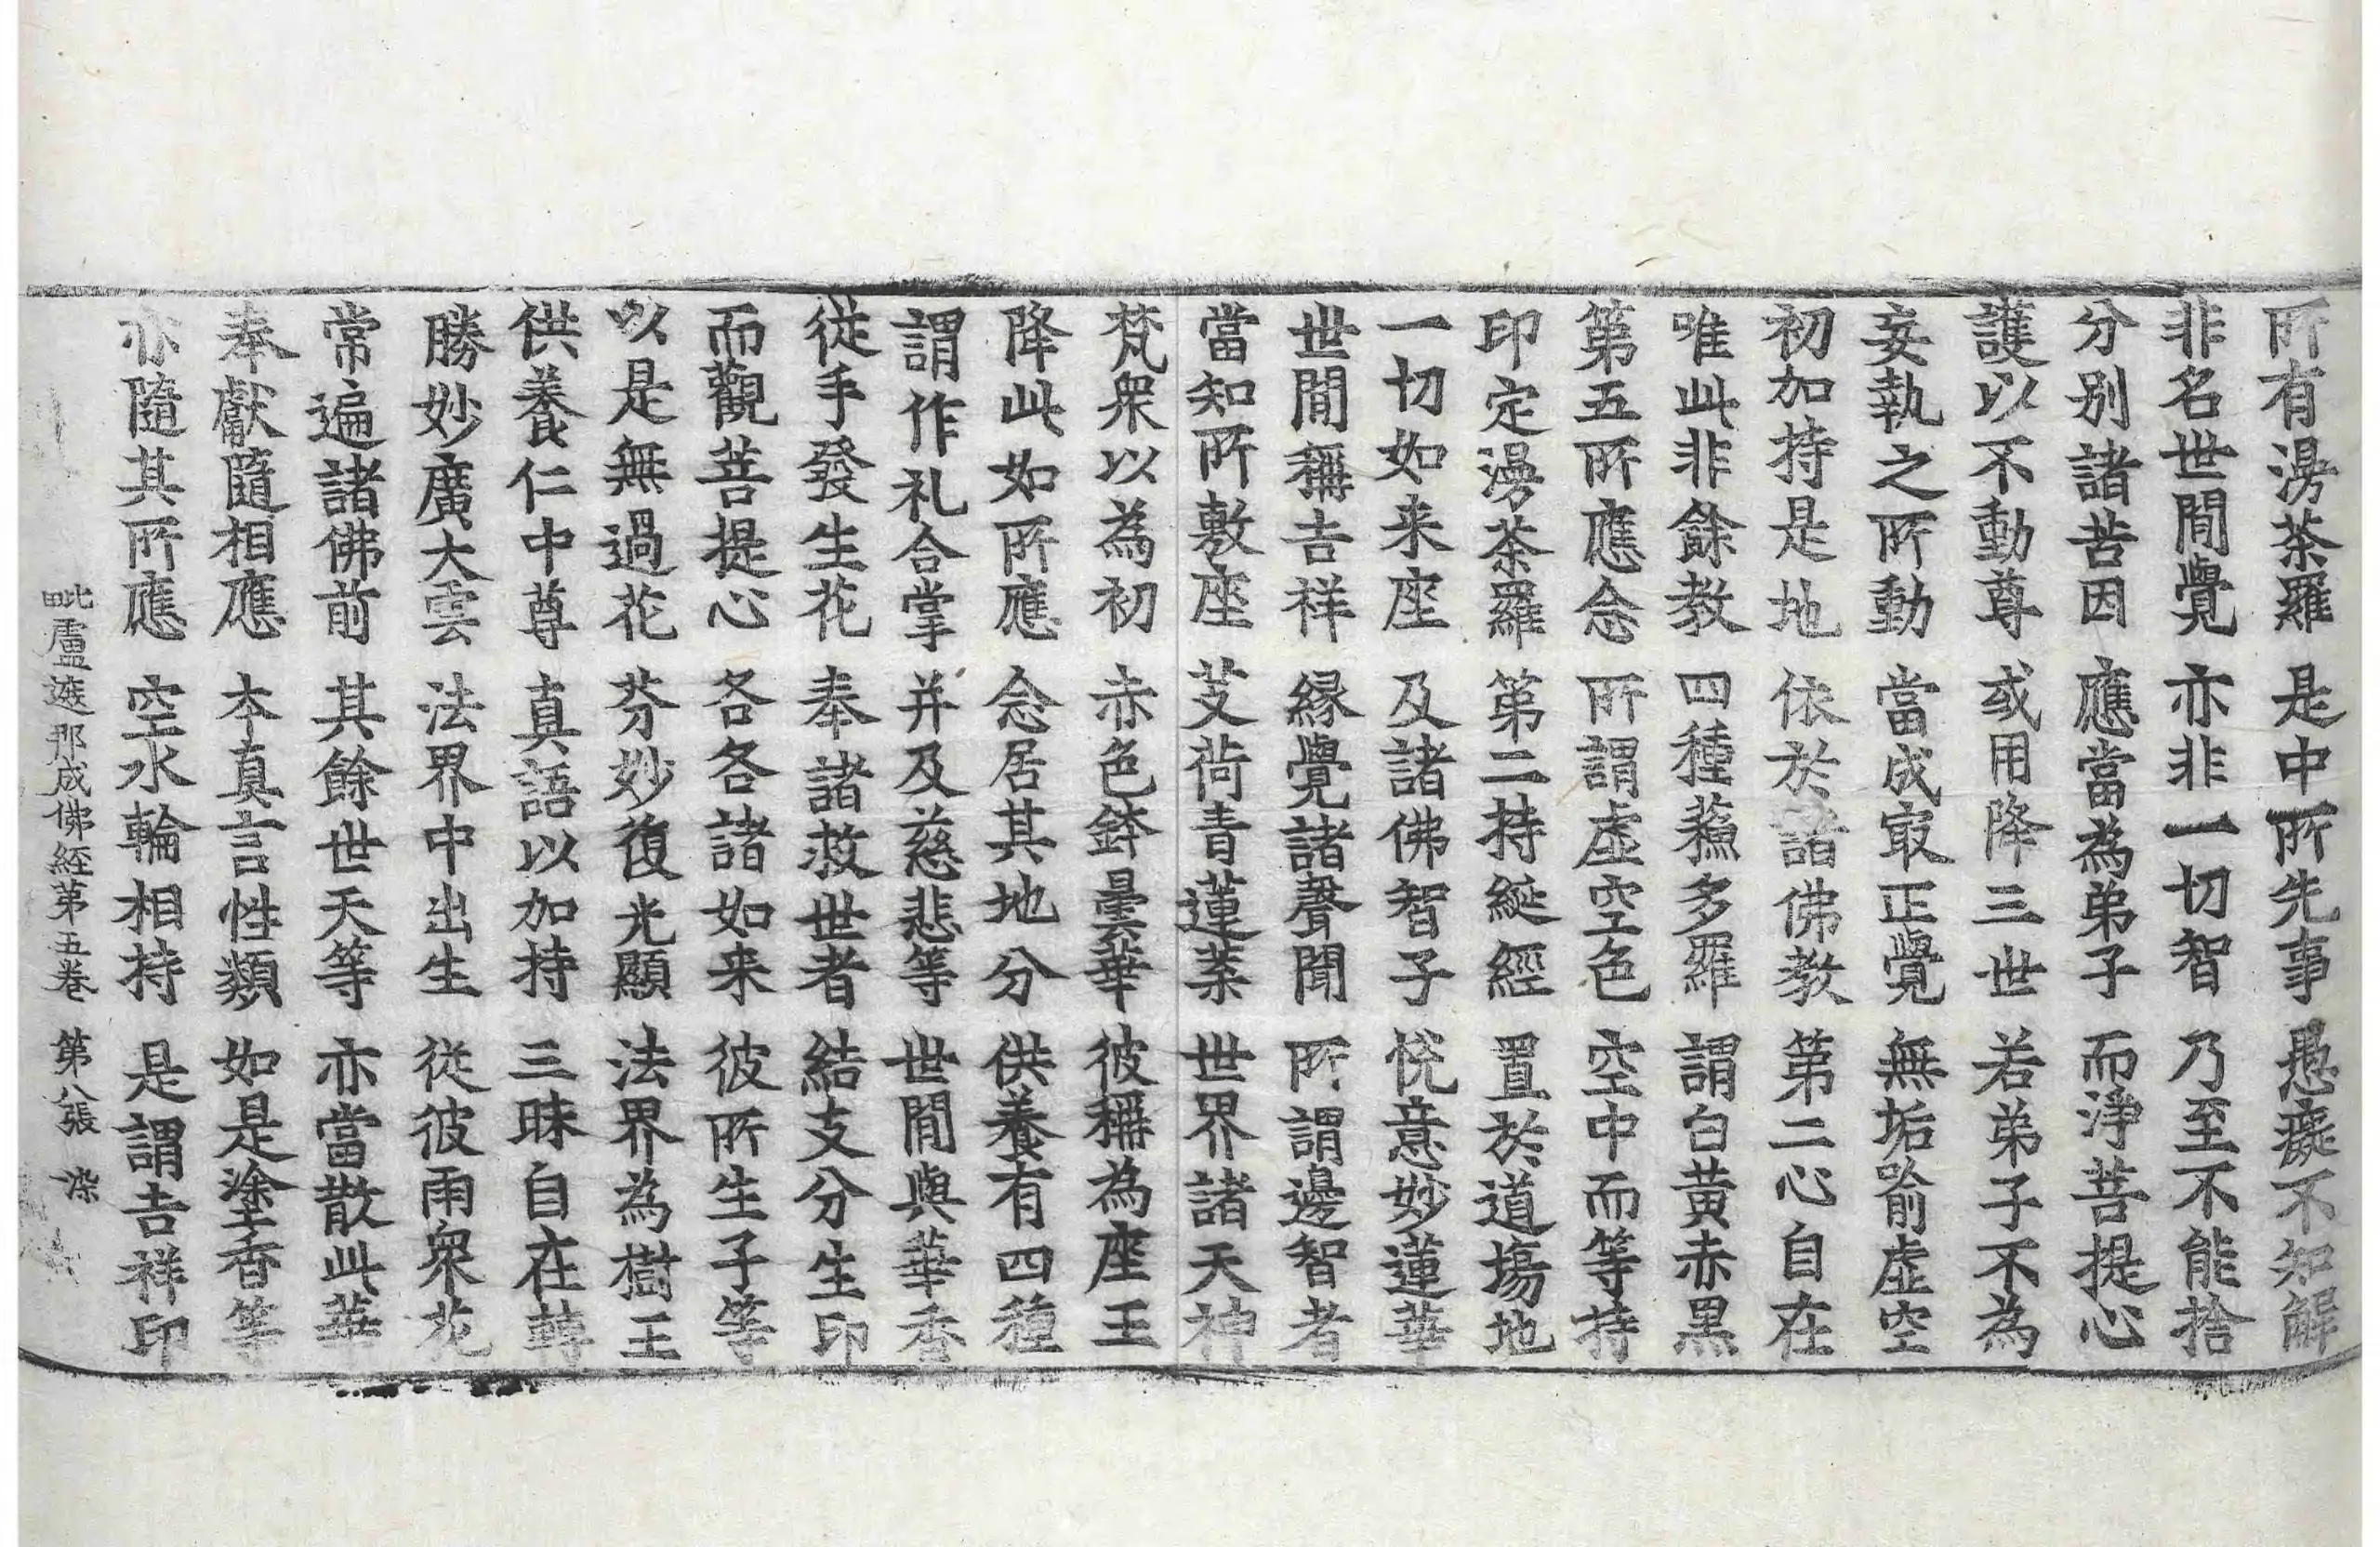 所有漫荼羅　是中所先事　愚癡不知解
非名世間覺　亦非一切智　乃至不能捨
分別諸苦因　應當為弟子　而淨菩提心
護以不動尊　或用降三世　若弟子不為
妄執之所動　當成冣正覺　無垢喻虛空
初加持是地　依於諸佛教　第二心自在
唯此非餘教　四種蘓多羅　謂白黃赤黑
第五所應念　所謂虛空色　空中而等持
印定漫荼羅　第二持綖經　置於道場地
一切如来座　及諸佛智子　悅意妙蓮華
世間稱吉祥　緣覺諸聲聞　所謂邊智者
當知所敷座　芰荷青蓮葉　世界諸天神
梵衆以為初　赤色鉢曇華　彼稱為座王
降此如所應　念居其地分　供養有四種
謂作礼合掌　并及慈悲等　世間與華香
從手發生花　奉諸救世者　結支分生印
而觀菩提心　各各諸如来　彼所生子等
以是無過花　芬妙復光顯　法界為樹王
供養仁中尊　真語以加持　三昧自在轉
勝妙廣大雲　法界中出生　從彼雨衆花
常遍諸佛前　其餘世天等　亦當散此華
奉獻隨相應　本真言性類　如是塗香等
亦隨其所應　空水輪相持　是謂吉祥印
毗盧遮那成佛經第五卷　第八張　染